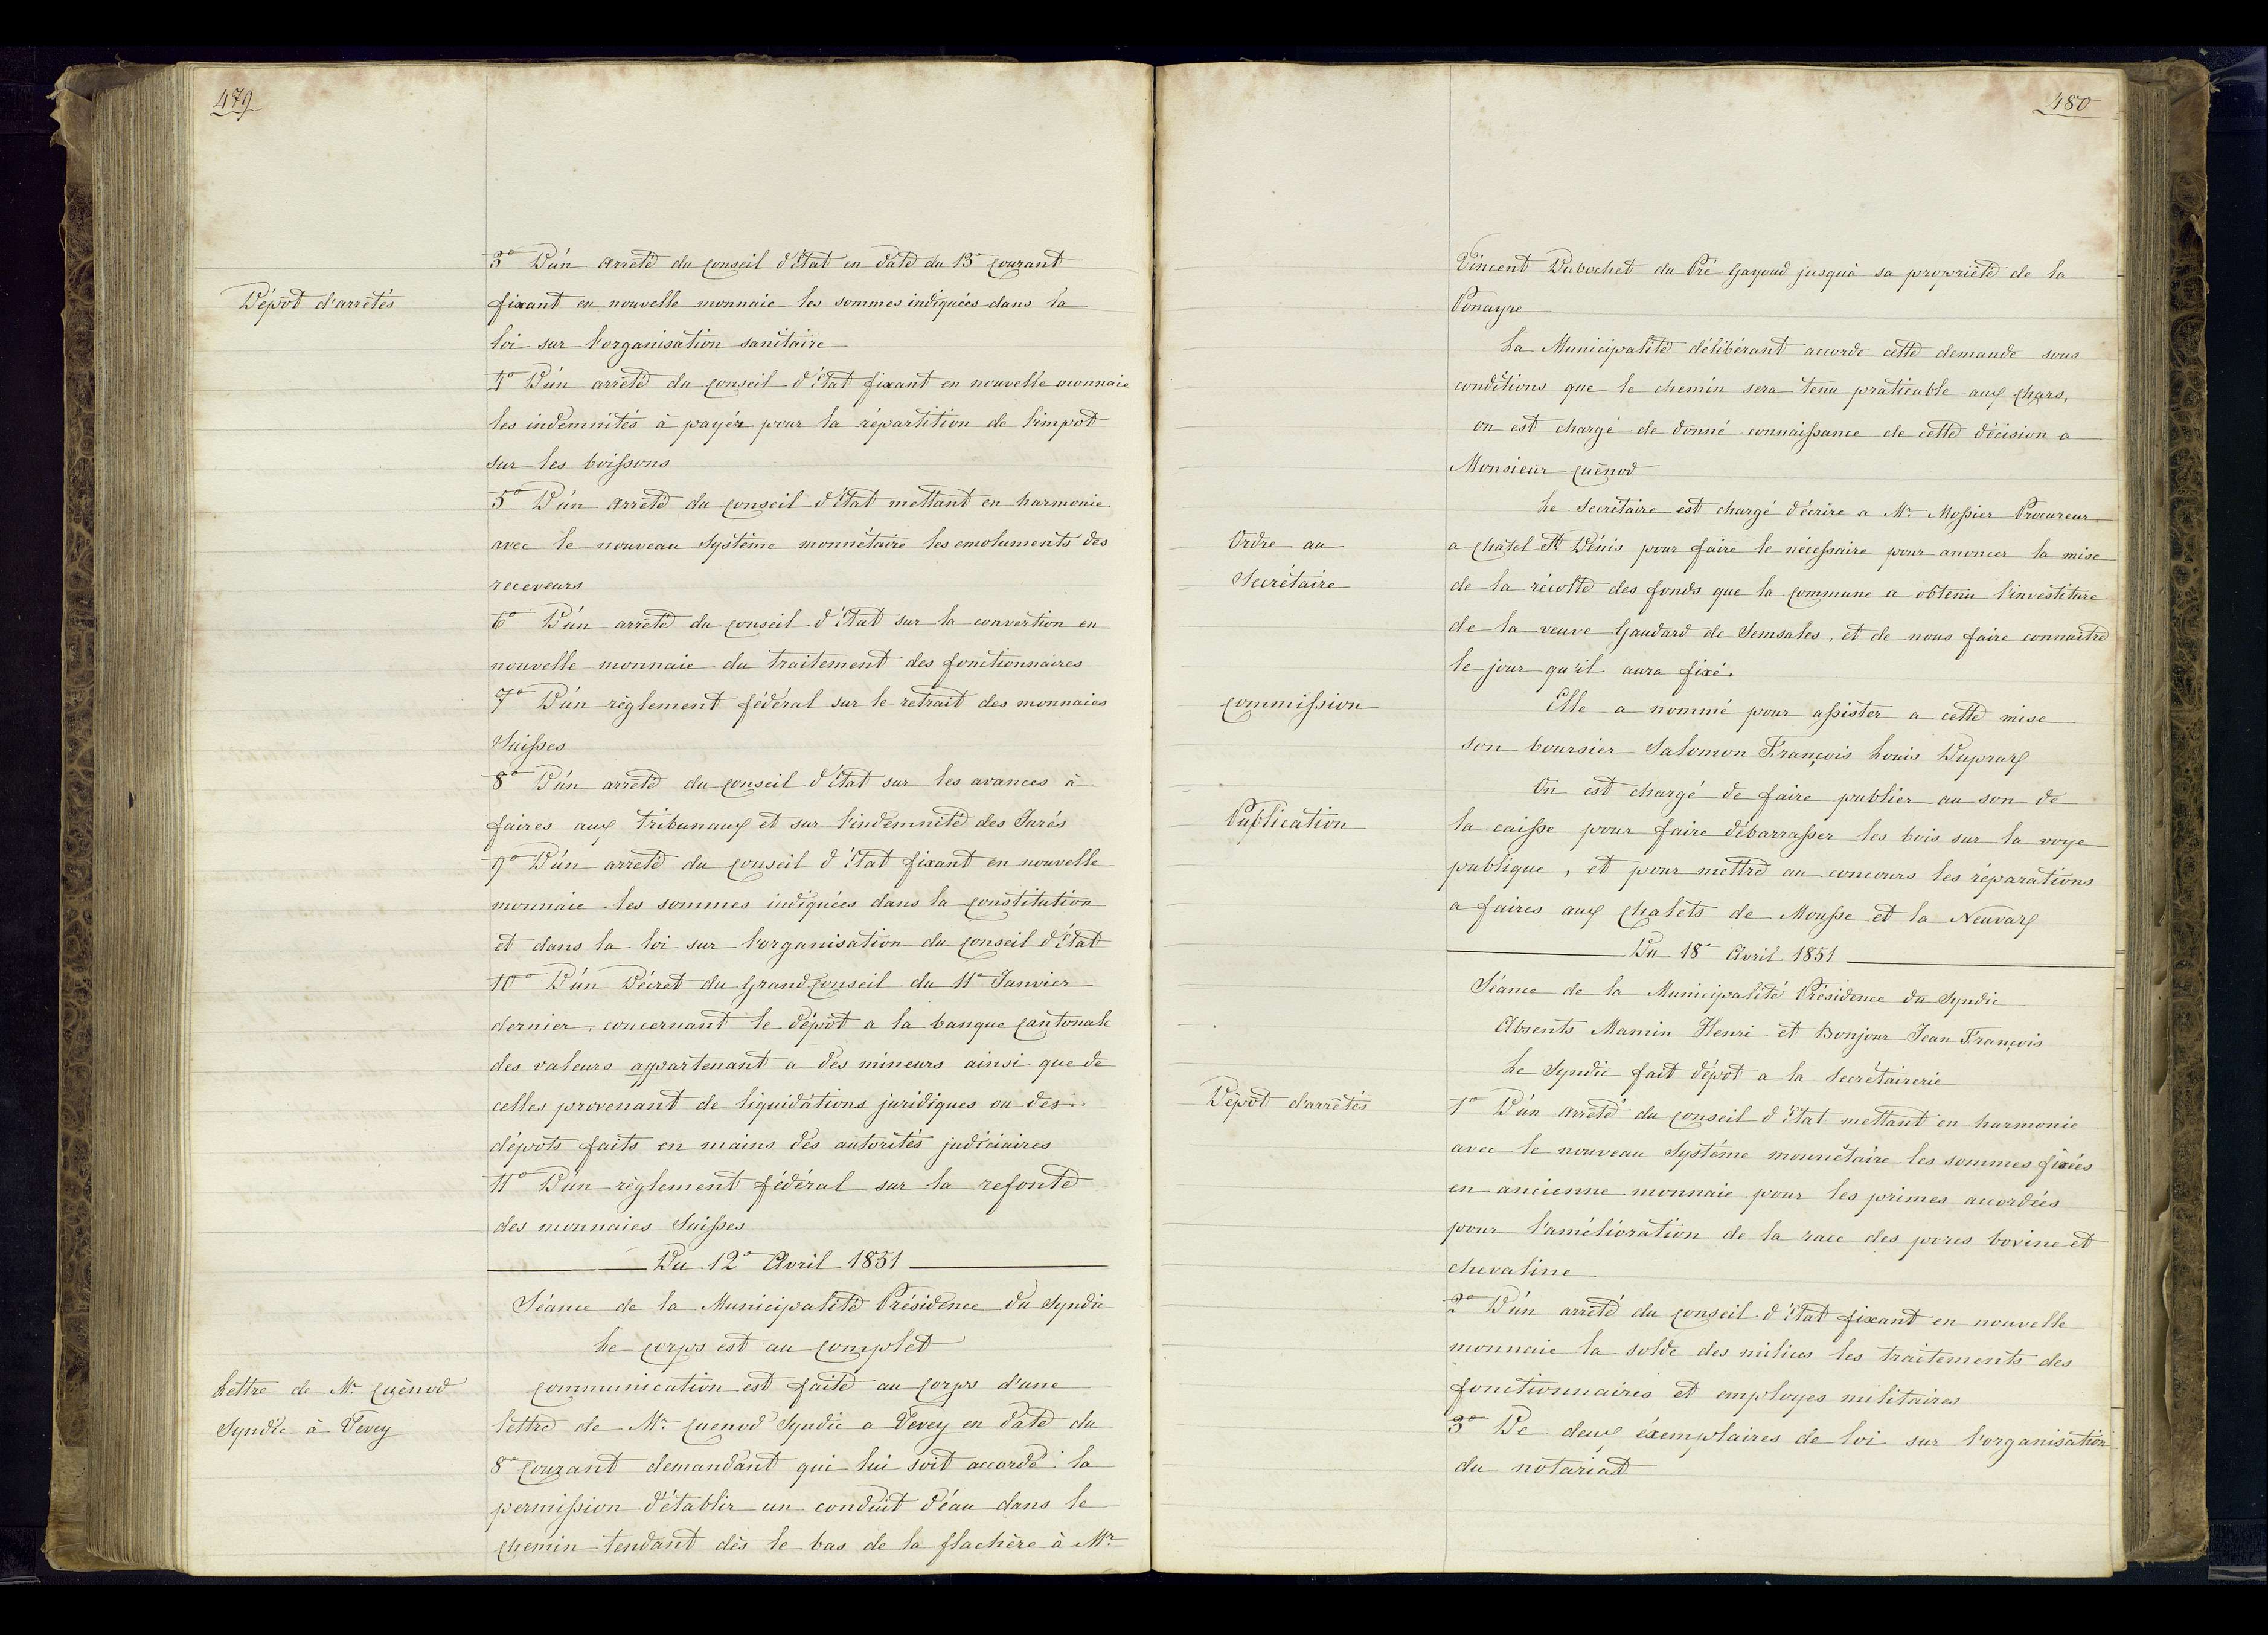 479
3° D'ún arrêté du Conseil d'État en date du 13e Courant
Dépôt d'arrêtés
fixant en nouvelle monnaie les sommes indiquées dans la
loi sur l'organisation sanitaire
4° D'ún arrêté du Conseil d'État fixant en nouvelle monnaie
les indemnités à payér pour la répartition de l'impot
sur les boissons
5° D'ún arrêté du Conseil d'État mettant en harmonie
avec le nouveau Système monnétaire les emoluments des
receveurs
6° D'ún arrêté du Conseil d'État sur la convertion en
nouvelle monnaie du traitement des fonctionnaires
7° D'ún règlement fédéral sur le retrait des monnaies
Suisses
8° D'ún arrêté du Conseil d'État sur les avances à
faires aux tribunaux et sur l'indemnité des Jurés
9° D'ún arrêté du Conseil d'État fixant en nouvelle
monnaie les sommes indiquées dans la Constitution
et dans la loi sur l'organisation du Conseil d'État
10° D'ún Décret du Grand Conseil du 11e Janvier
dernier concernant le dépôt a la banque Cantonale
des valeurs appartenant a des mineurs ainsi que de
celles provenant de liquidations juridiques ou des
dépots faits en mains des autorités judiciaires
11° D'ún règlement fédéral sur la refonte
des monnaies Suisses
Du 12e Avril 1851
Séance de la Municipalité Présidence du Syndic
Le Corps est au Complet
Lettre de Mr Cuénod
Syndic à Vevey
Communication est faite au Corps d'une
lettre de Mr Cuenod Syndic a Vevey en date du
8e Courant demandant qui lui soit accordé la
permission d'établir un conduit d'éau dans le
Chemin tendant dès le bas de la flachère à Mr
480
Vincent Dubochet du Pré Gayoud jusqu'à sa propriété de la
Ponayre
La Municipalité délibérant accorde cette demande sous
conditions que le chemin sera tenu praticable aux Chars,
on est chargé de donné connaissance de cette décision a
Monsieur Cuénod
Le Secrétaire est chargé d'écrire a Mr Mossier Procureur
Ordre au
Secrétaire
a Châtel St Dénis pour faire le nécessaire pour anoncer la mise
de la récolte des fonds que la Commune a obtenu l'investiture
de la veuve Gaudard de Semsales, et de nous faire connaitre
le jour qu'il aura fixé.
Commission
Elle a nommé pour assister a cette mise
son boursier Salomon François Louis Dupraz
On est chargé de faire publier au son de
Publication
la caisse pour faire débarrasser les bois sur la voye
publique, et pour mettre au concours les réparations
a faires aux Chalets de Mousse et la Neuvaz
Du 18e Avril 1851
Séance de la Municipalité Présidence du Syndic
Absents Mamin Henri et Bonjour Jean François
Le Syndic fait dépot a la Secrétairerie
Dépôt d'arrêtés
1° D'ún arrêté du Conseil d'État mettant en harmonie
avec le nouveau Système monnétaire les sommes fixées
en ancienne monnaie pour les primes accordées
pour l'amélioration de la race des porcs bovine et
chevaline
2° D'ún arrêté du Conseil d'État fixant en nouvelle
monnaie la solde des milices les traitements des
fonctionnaires et employes militaires
3° De deux éxemplaires de loi sur l'organisation
du notariat